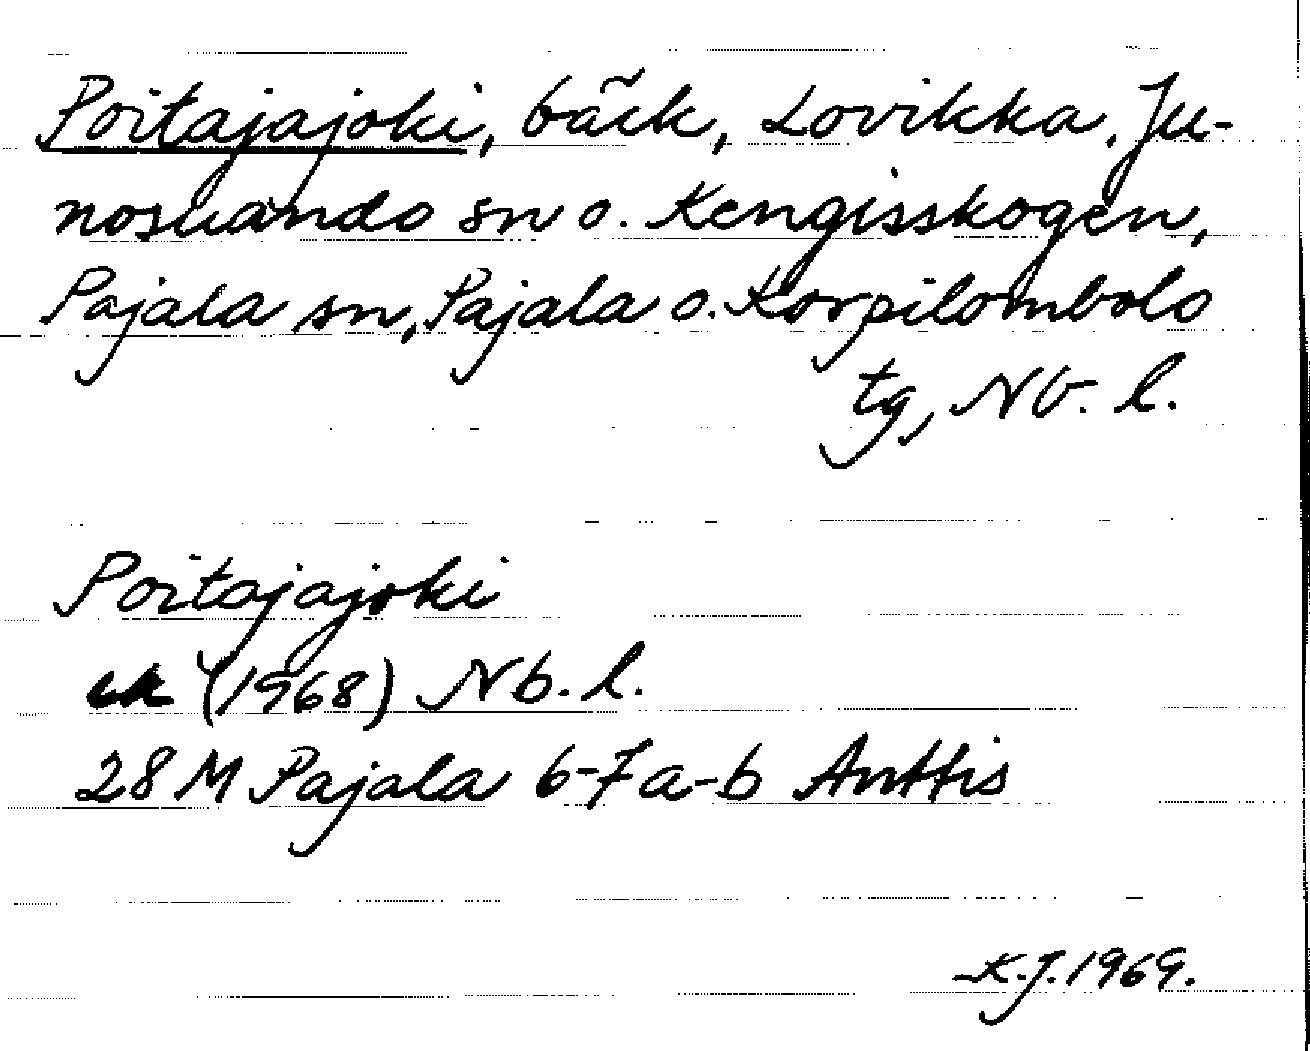 Poitajajoki, bäck, Lovikka, Ju-
nosuando sn o. Kengisskogen,
Pajala sn, Pajala o. Korpilombolo
tg, Nb. l.
Poitajajoki
ek (1968) Nb. l.
28 M Pajala 6-7 a-b Anttis
K.J. 1969.